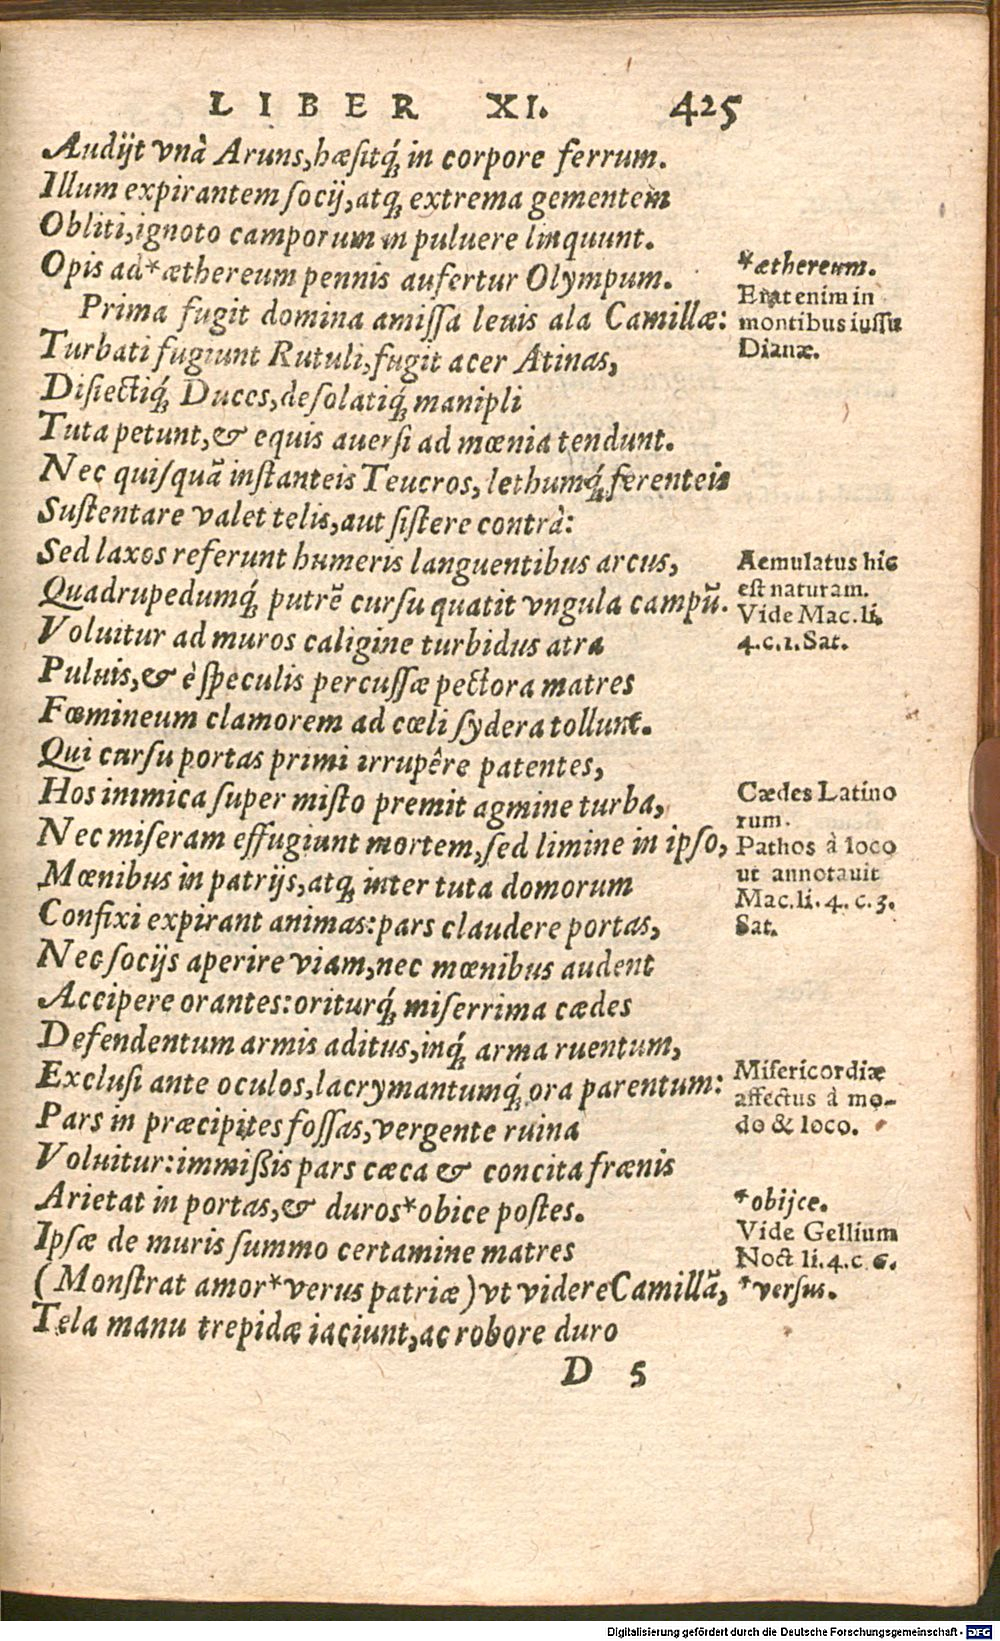 LIBER XI. 425
Audijt vnà Aruns, hæsitq́; in corpore ferrum.
Illum expirantem socij, atq; extrema gementem
Obliti, ignoto camporum in puluere linquunt.
Opis ad*æthereum pennis aufertur Olympum.
Prima fugit domina amissa leuis ala Camillæ:
Turbati fugiunt Rutuli, fugit acer Atinas,
Disiectiq́; Duces, desolatiq́; manipli
Tuta petunt, & equis auersi ad mœnia tendunt.
Nec quisquã instanteis Teucros, lethumq́; ferenteis
Sustentare valet telis, aut sistere contrà:
Sed laxos referunt humeris languentibus arcus,
Quadrupedumq́; putrẽ cursu quatit vngula campũ.
Voluitur ad muros caligine turbidus atra
Puluis, & è speculis percussæ pectora matres
Fœmineum clamorem ad cœli sydera tollunt.
Qui cursu portas primi irrupêre patentes,
Hos inimica super misto premit agmine turba,
Nec miseram effugiunt mortem, sed limine in ipso,
Mœnibus in patrijs, atq; inter tuta domorum
Confixi expirant animas: pars claudere portas,
Nec socijs aperire viam, nec mœnibus audent
Accipere orantes: oriturq́; miserrima cædes
Defendentum armis aditus, inq́; arma ruentum,
Exclusi ante oculos, lacrymantumq́; ora parentum:
Pars in præcipites fossas, vergente ruina
Voluitur: immißis pars cæca & concita frænis
Arietat in portas, & duros*obice postes.
Ipsæ de muris summo certamine matres
(Monstrat amor*verus patriæ) vt videre Camillã,
Tela manu trepidæ iaciunt, ac robore duro
D 5
*æthereum.
Erat enim in
montibus iussu
Dianæ.
Aemulatus hic
est naturam.
Vide Mac. li.
4. c. 1. Sat.
Cædes Latino
rum.
Pathos à loco
ut annotauit
Mac. li. 4. c. 3.
Sat.
Misericordiæ
affectus à mo-
do & loco.
*obijce.
Vide Gellium
Noct li. 4. c. 6.
*versus.
Digitalisierung gefördert durch die Deutsche Forschungsgemeinschaft - DFG